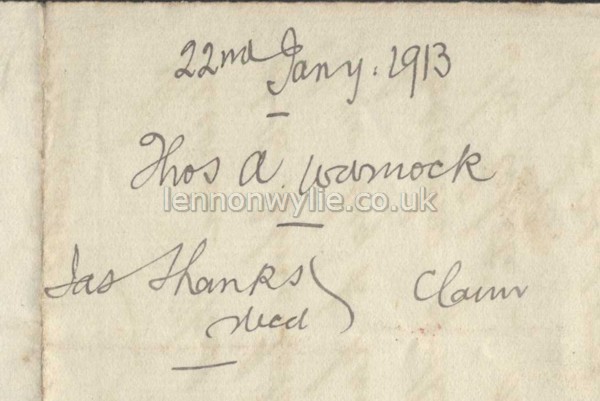 22nd Jany. 1913
Thos A. Warnock
lennonwylie.co.uk
Jas Shanks Claim
decd